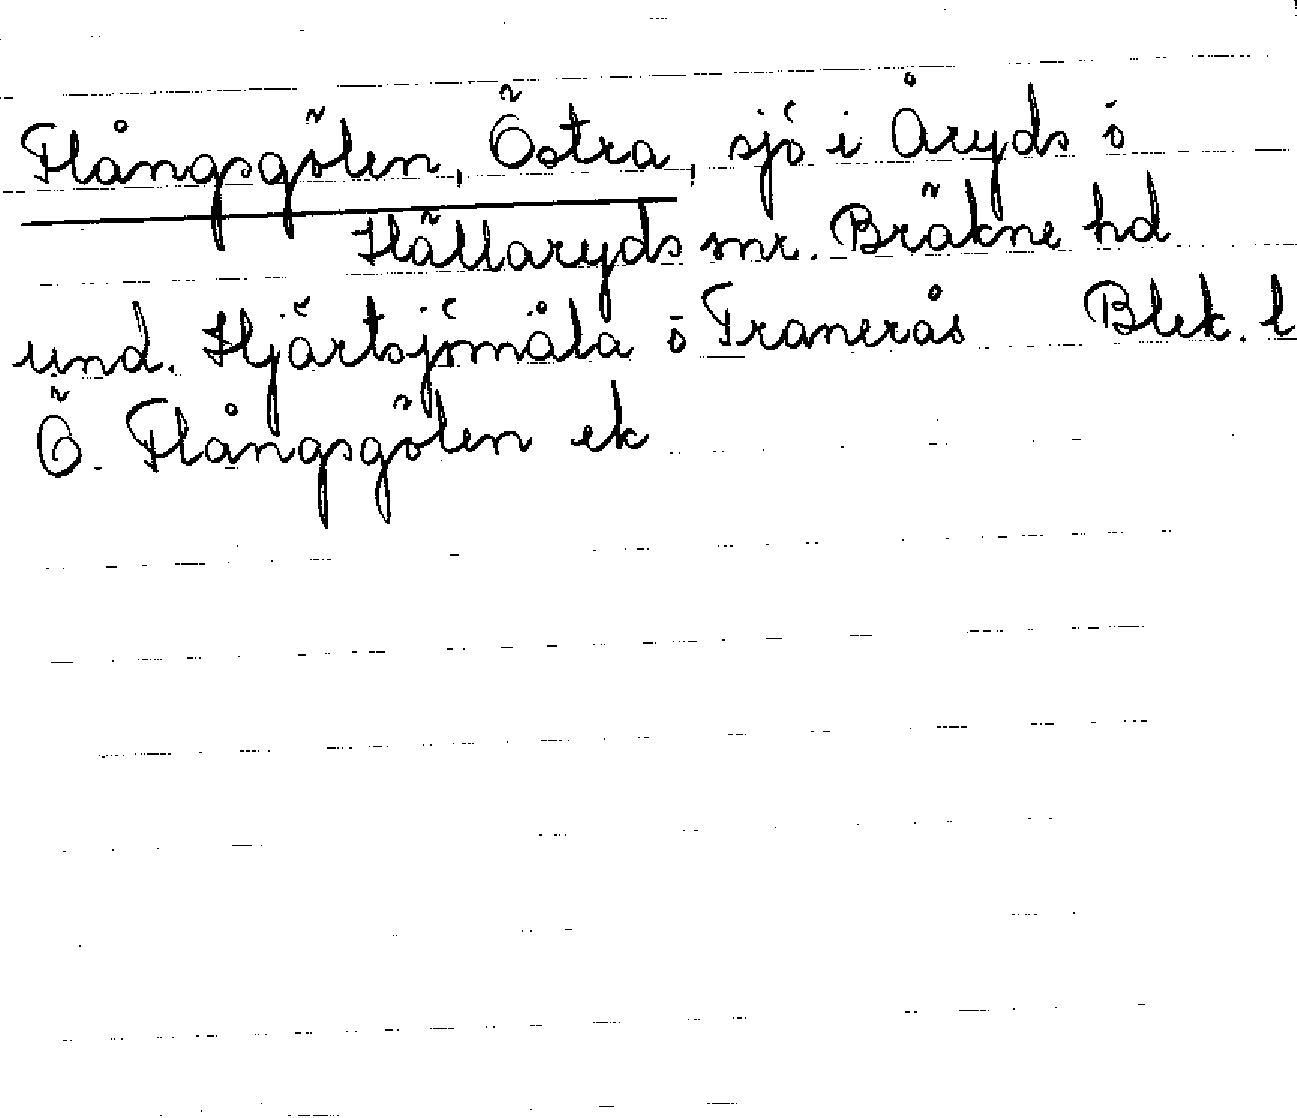 Flångsgölen, Östra, sjö i Åryds ö
Hällaryds snr. Bräkne hd
und. Hjärtsjömåla ö Tranerås Blek. l
Ö. Flångsgölen ek